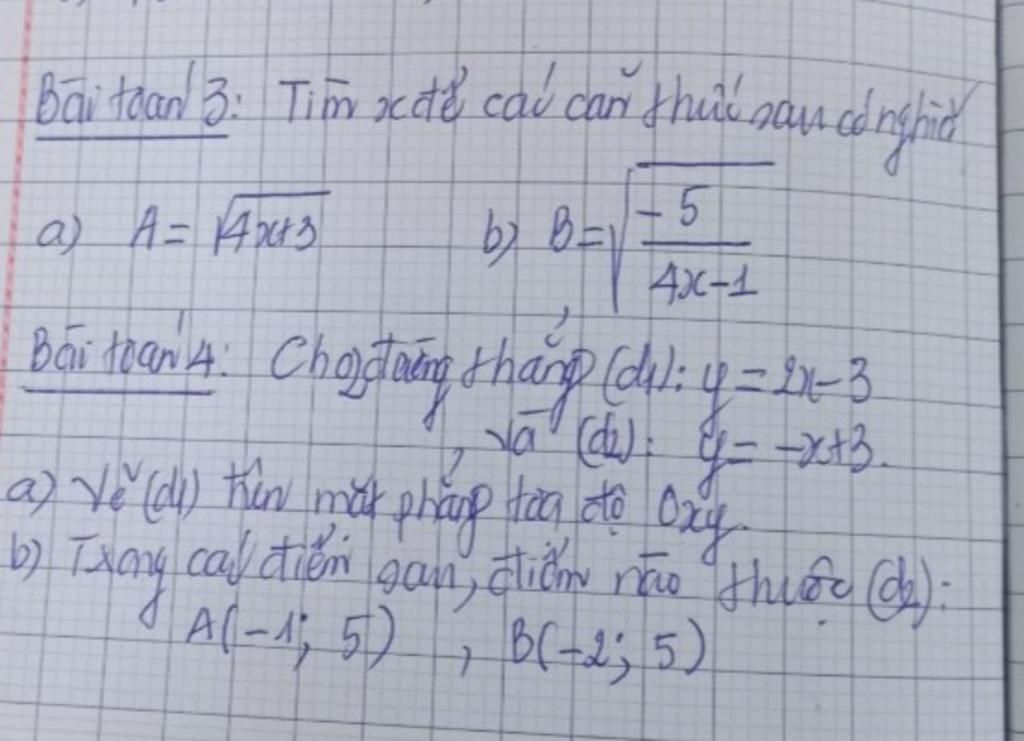 Bài toán 3: Tìm x để các căn thức sau có nghĩa
a) A = √4x+3 b) B = √-5/4x-1
Bài toán 4: Cho đường thẳng (d1): y = 2x-3
và (d2): y = -x+3.
a) Vẽ (d1) trên mặt phẳng tọa độ Oxy.
b) Trong các điểm sau, điểm nào thuộc (d2):
A(-1; 5) , B(-2; 5)